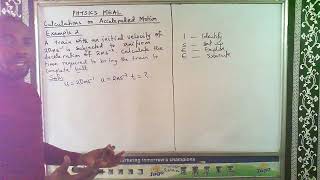 PHYSICS MEAL
Calculations on Accelerated Motion
Example 2
A train with an initial velocity of
20ms⁻¹ is subjected to uniform
deceleration of 2ms⁻². Calculate the
time required to bring the train to
complete halt.
Soln:
u = 20ms⁻¹ a = 2ms⁻² t = ?
I - Identify
S - Set Up
E - 
E - Evaluate
nurturing tomorrow's champions